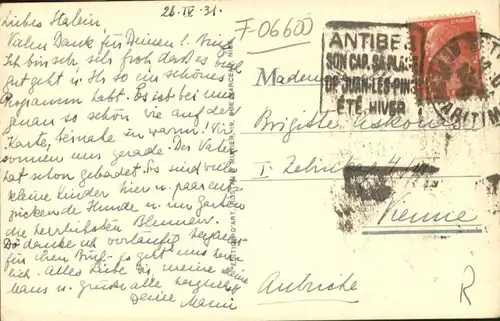 26.IV.31.
F-06600
Liebes Stalein
Vielen Dank für Deinen l. Brief
Ich bin sehr froh dass es euch
gut geht u. Ihr so ein schönes
Programm habt. Es ist bei uns
genau so schön wie auf der
Karte, beinahe zu warm! Wir
sonnen uns gerade. Der Vater
hat schon gebadet. Es sind viel
kleine Kinder hier u. paar ent
zückende Hunde u. im Garten
die herrlichsten Blumen.
Ich danke ich vorläufig
für ihren Brief. Es geht uns herr
lich. Alles Liebe Dir, meine kleine
Maus u. grüsse alle herzlichst
Deine Mami
ANTIBES
SON CAP, SA PLAGE
DE JUAN-LES-PINS
ÉTÉ, HIVER
MARITIM
Madem
Brigitte
I.
Vienne
Autriche
R